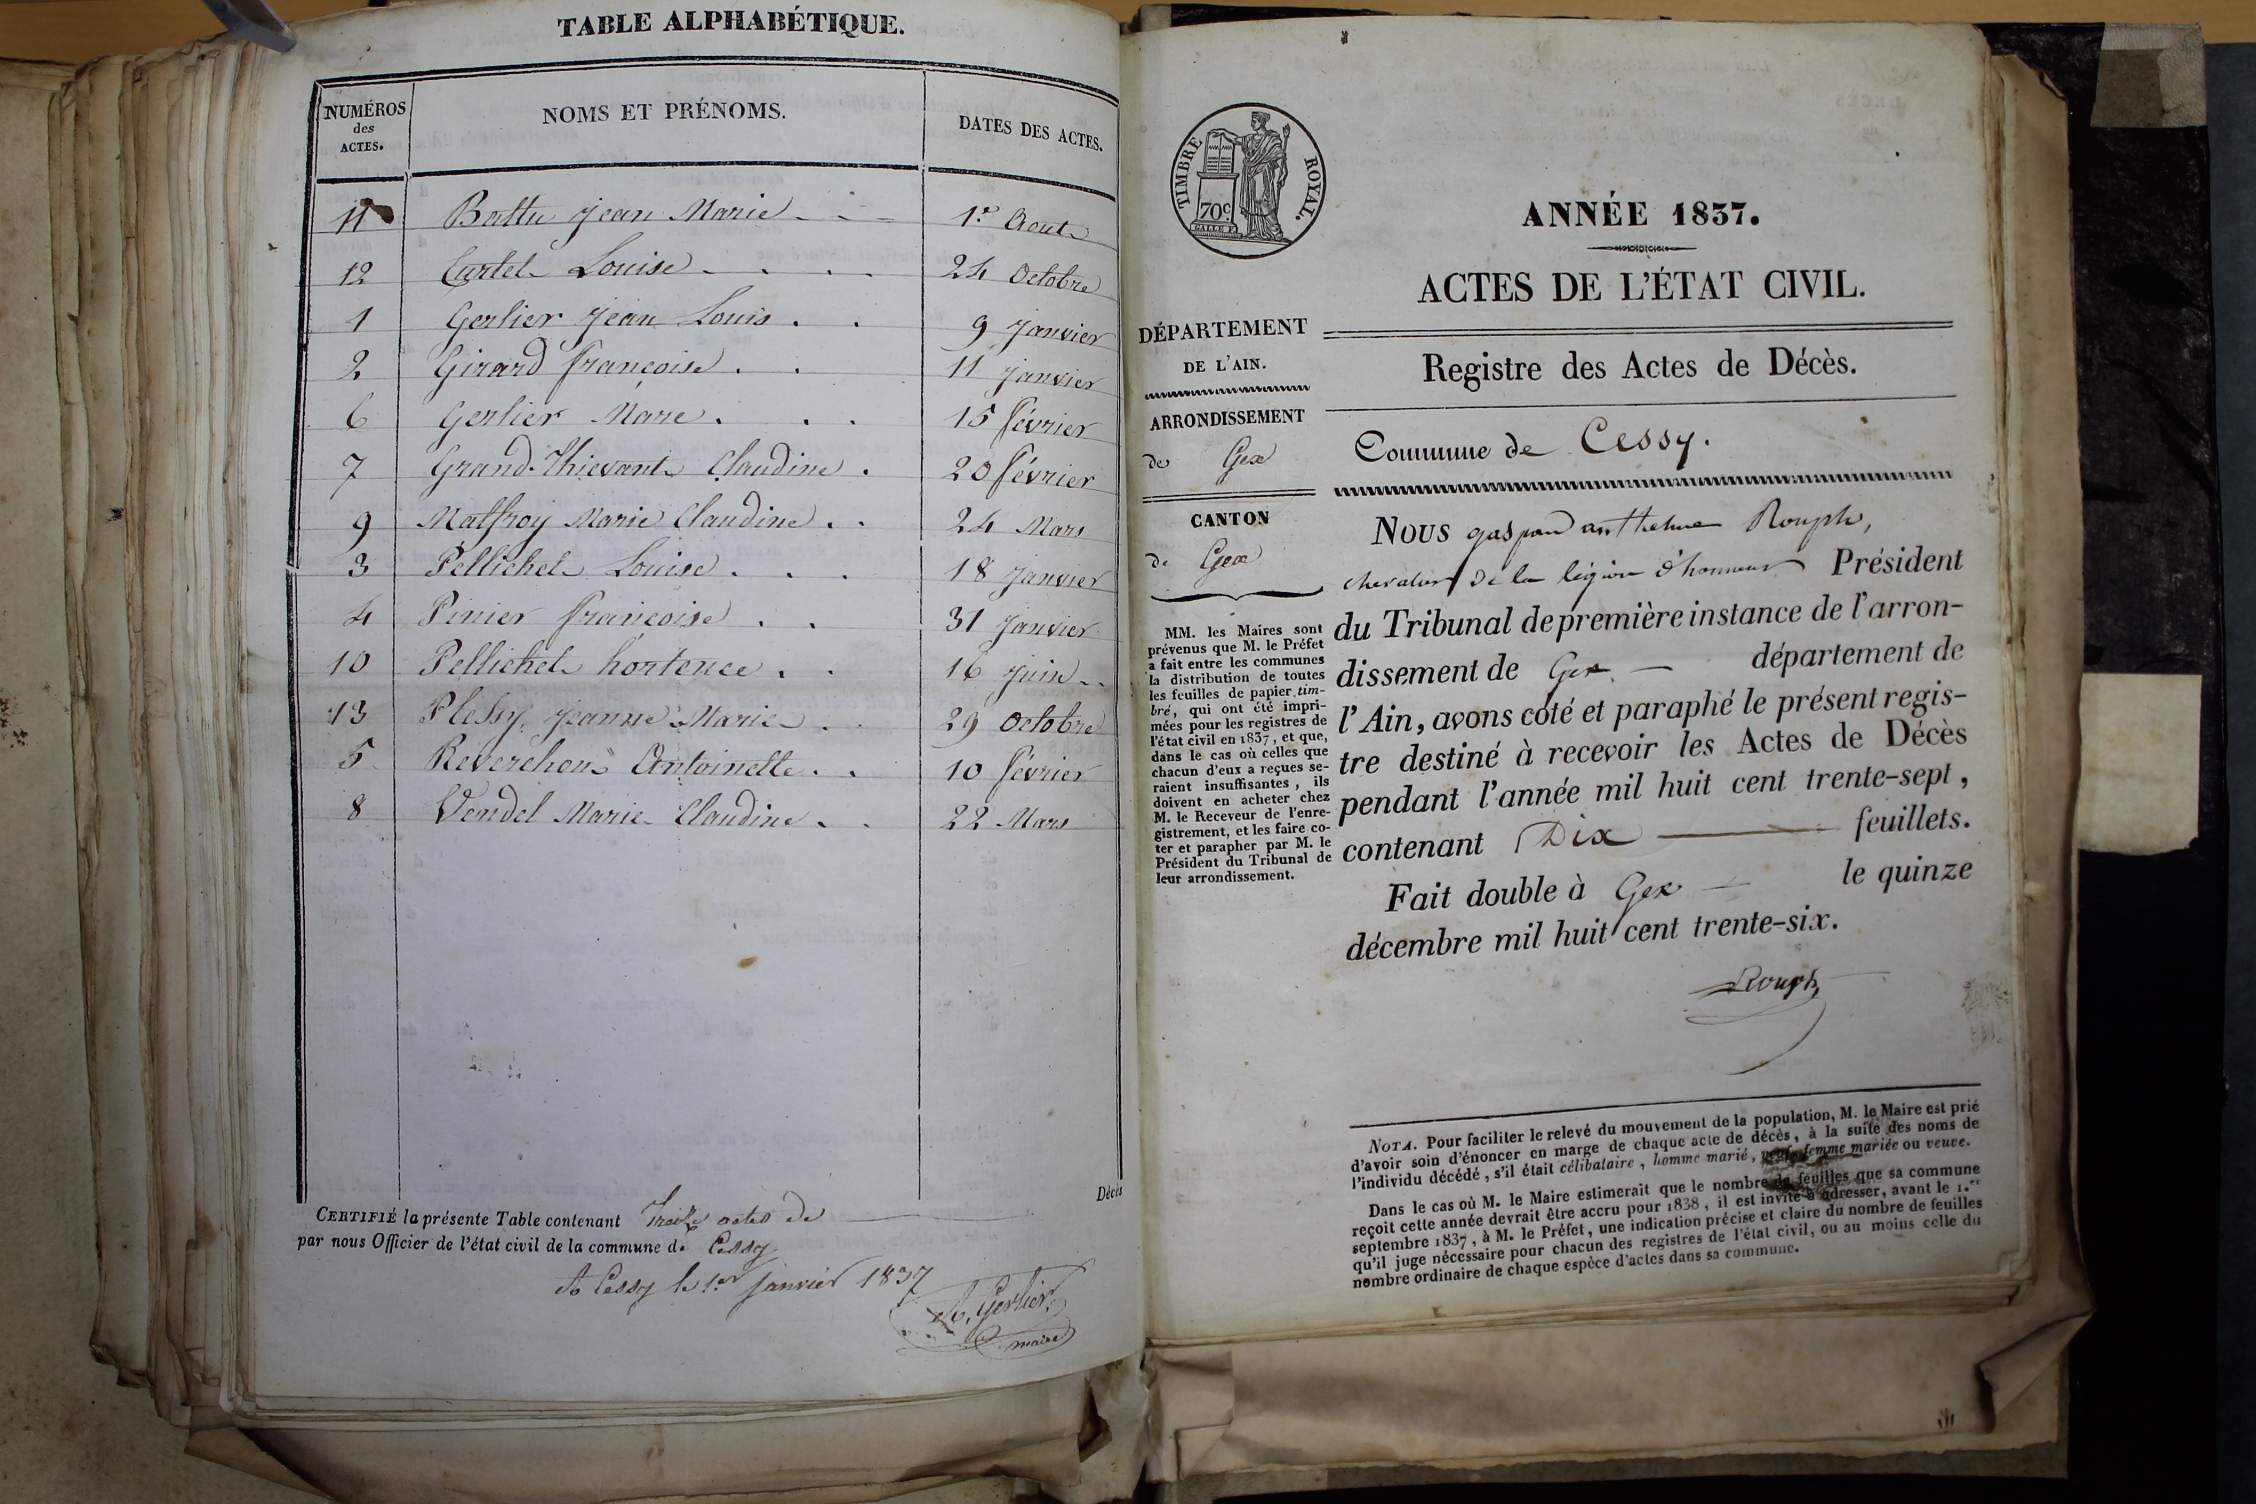 TABLE ALPHABÉTIQUE.
NUMÉROS des ACTES. NOMS ET PRÉNOMS. DATES DES ACTES.
11 Battu jean Marie 1er Aout
12 Curtet Louise 24 Octobre
1 Gerlier jean Louis 9 janvier
2 Girard françoise 11 janvier
6 Gerlier Marie 15 février
7 Grand-Thievant Claudine 20 février
9 Matfroy Marie Claudine 24 Mars
3 Pellichet Louise 18 janvier
4 Pinier françoise 31 janvier
10 Pellichet hortence 16 juin
13 Plessy jeanne Marie 29 Octobre
5 Reverchon Antoinette 10 février
8 Vendel Marie Claudine 22 Mars
Décès
CERTIFIÉ la présente Table contenant Treize actes de
par nous Officier de l'état civil de la commune de Cessy
A Cessy le 1.er janvier 1837
A. Gerlier
maire
TIMBRE ROYAL.
70c
ANNÉE 1837.
ACTES DE L'ÉTAT CIVIL.
DÉPARTEMENT
DE L'AIN.
ARRONDISSEMENT
de Gex
CANTON
de Gex
MM. les Maires sont
prévenus que M. le Préfet
a fait entre les communes
la distribution de toutes
les feuilles de papier tim-
bré, qui ont été impri-
mées pour les registres de
l'état civil en 1837, et que,
dans le cas où celles que
chacun d'eux a reçues se-
raient insuffisantes, ils
doivent en acheter chez
M. le Receveur de l'enre-
gistrement, et les faire co-
ter et parapher par M. le
Président du Tribunal de
leur arrondissement.
Registre des Actes de Décès.
Commune de Cessy.
NOUS gaspard anthelme Rouph,
chevalier de la légion d'honneur Président
du Tribunal de première instance de l'arron-
dissement de Gex département de
l'Ain, avons coté et paraphé le présent regis-
tre destiné à recevoir les Actes de Décès
pendant l'année mil huit cent trente-sept,
contenant Dix feuillets.
Fait double à Gex le quinze
décembre mil huit cent trente-six.
Rouph
NOTA. Pour faciliter le relevé du mouvement de la population, M. le Maire est prié
d'avoir soin d'énoncer en marge de chaque acte de décès, à la suite des noms de
l'individu décédé, s'il était célibataire, homme marié, veuf, femme mariée ou veuve.
Dans le cas où M. le Maire estimerait que le nombre de feuilles que sa commune
reçoit cette année devrait être accru pour 1838, il est invité à adresser, avant le 1.er
septembre 1837, à M. le Préfet, une indication précise et claire du nombre de feuilles
qu'il juge nécessaire pour chacun des registres de l'état civil, ou au moins celle du
nombre ordinaire de chaque espèce d'actes dans sa commune.